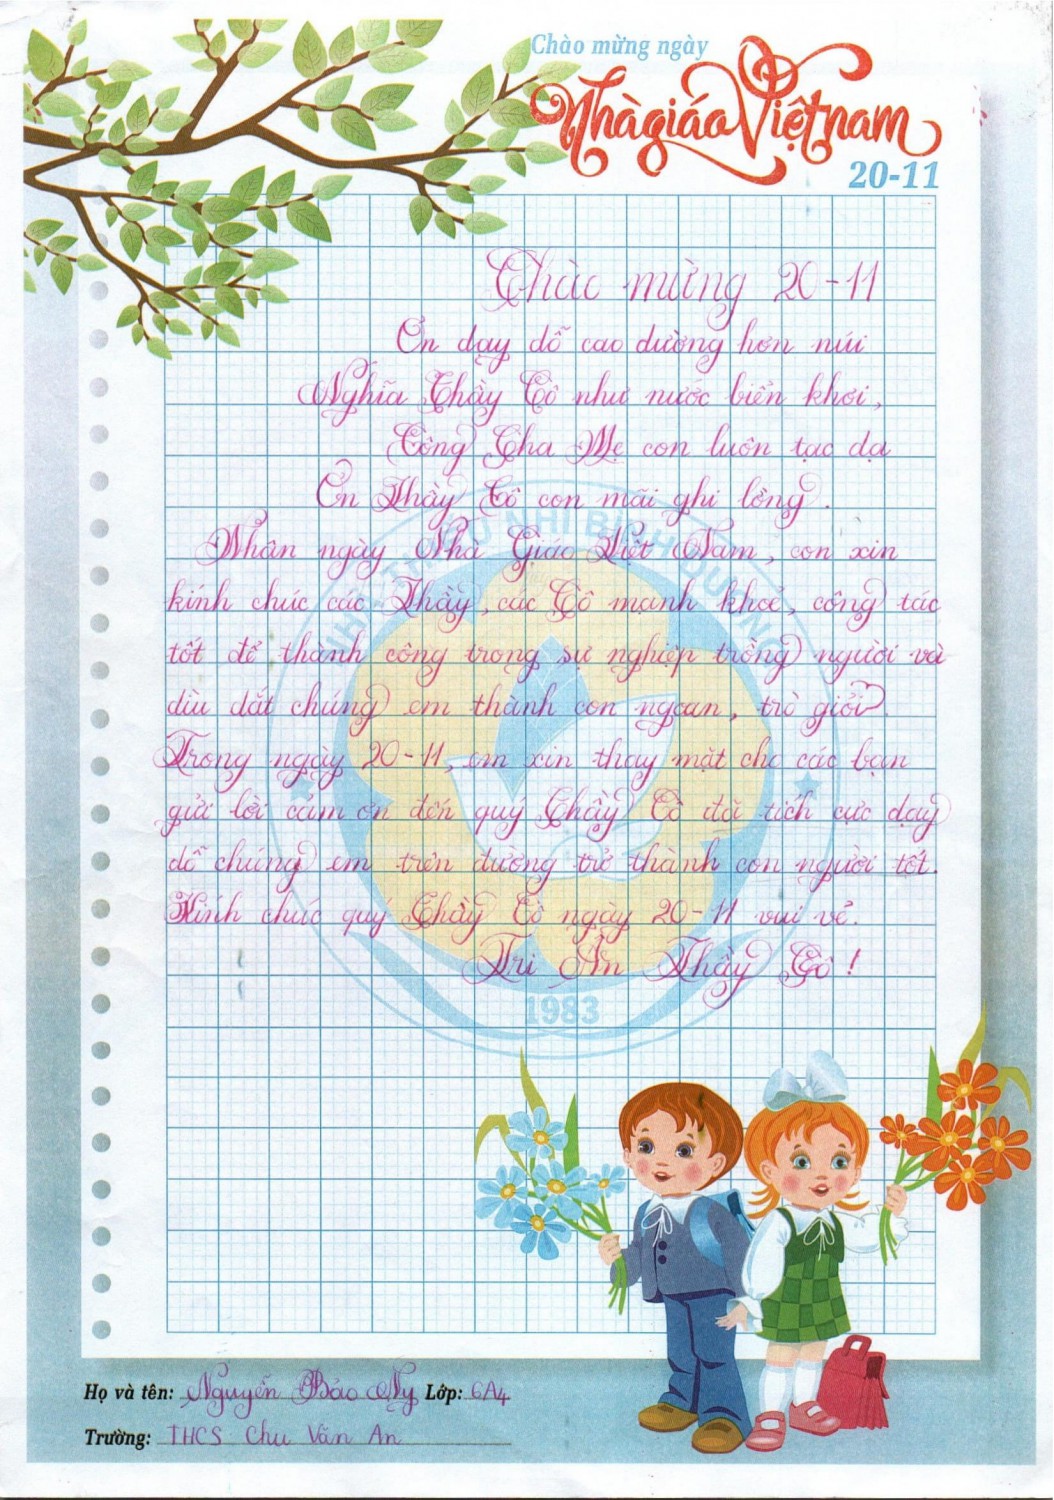 Chào mừng ngày
Nhà giáo Việt nam
20-11
Chào mừng 20-11
Ơn dạy dỗ cao dường hơn núi
Nghĩa Thầy Cô như nước biển khơi,
Công Cha Mẹ con luôn tạc dạ
Ơn Thầy Cô con mãi ghi lòng.
Nhân ngày Nhà Giáo Việt Nam, con xin
kính chúc các Thầy, các Cô mạnh khoẻ, công tác
tốt để thành công trong sự nghiệp trồng người và
dìu dắt chúng em thành con ngoan, trò giỏi.
Trong ngày 20-11, em xin thay mặt cho các bạn
gửi lời cảm ơn đến quý Thầy Cô đã tích cực dạy
dỗ chúng em trên đường trở thành con người tốt.
Kính chúc quý Thầy Cô ngày 20-11 vui vẻ.
Tri Ân Thầy Cô !
NHÀ THIẾU NHI BÌNH DƯƠNG
1983
Họ và tên: Nguyễn Bảo Ny Lớp: 6A4
Trường: THCS Chu Văn An